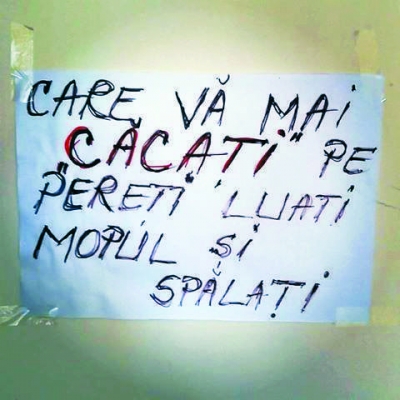 CARE VĂ MAI
"CĂCATI" PE
"PERETI" LUATI
MOPUL ȘI
SPĂLAȚI